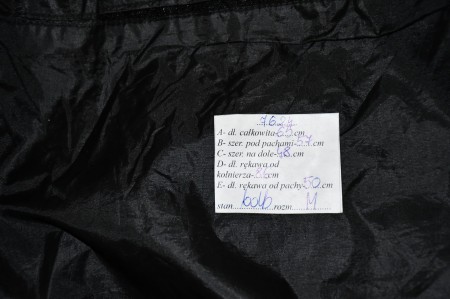 A- dł. całkowita-65.cm
B- szer. pod pachami-57.cm
C- szer. na dole-48.cm
D- dł. rękawa.od
kołnierza- cm
E- dł. rękawa od pachy-50.cm
stan rozm M